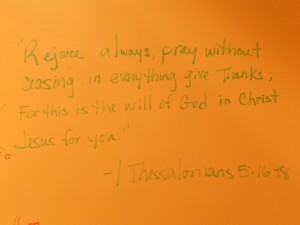 "Rejoice always, pray without
ceasing in everything give Thanks;
For this is the will of God in Christ
Jesus for you."
-1 Thessalonians 5:16-18